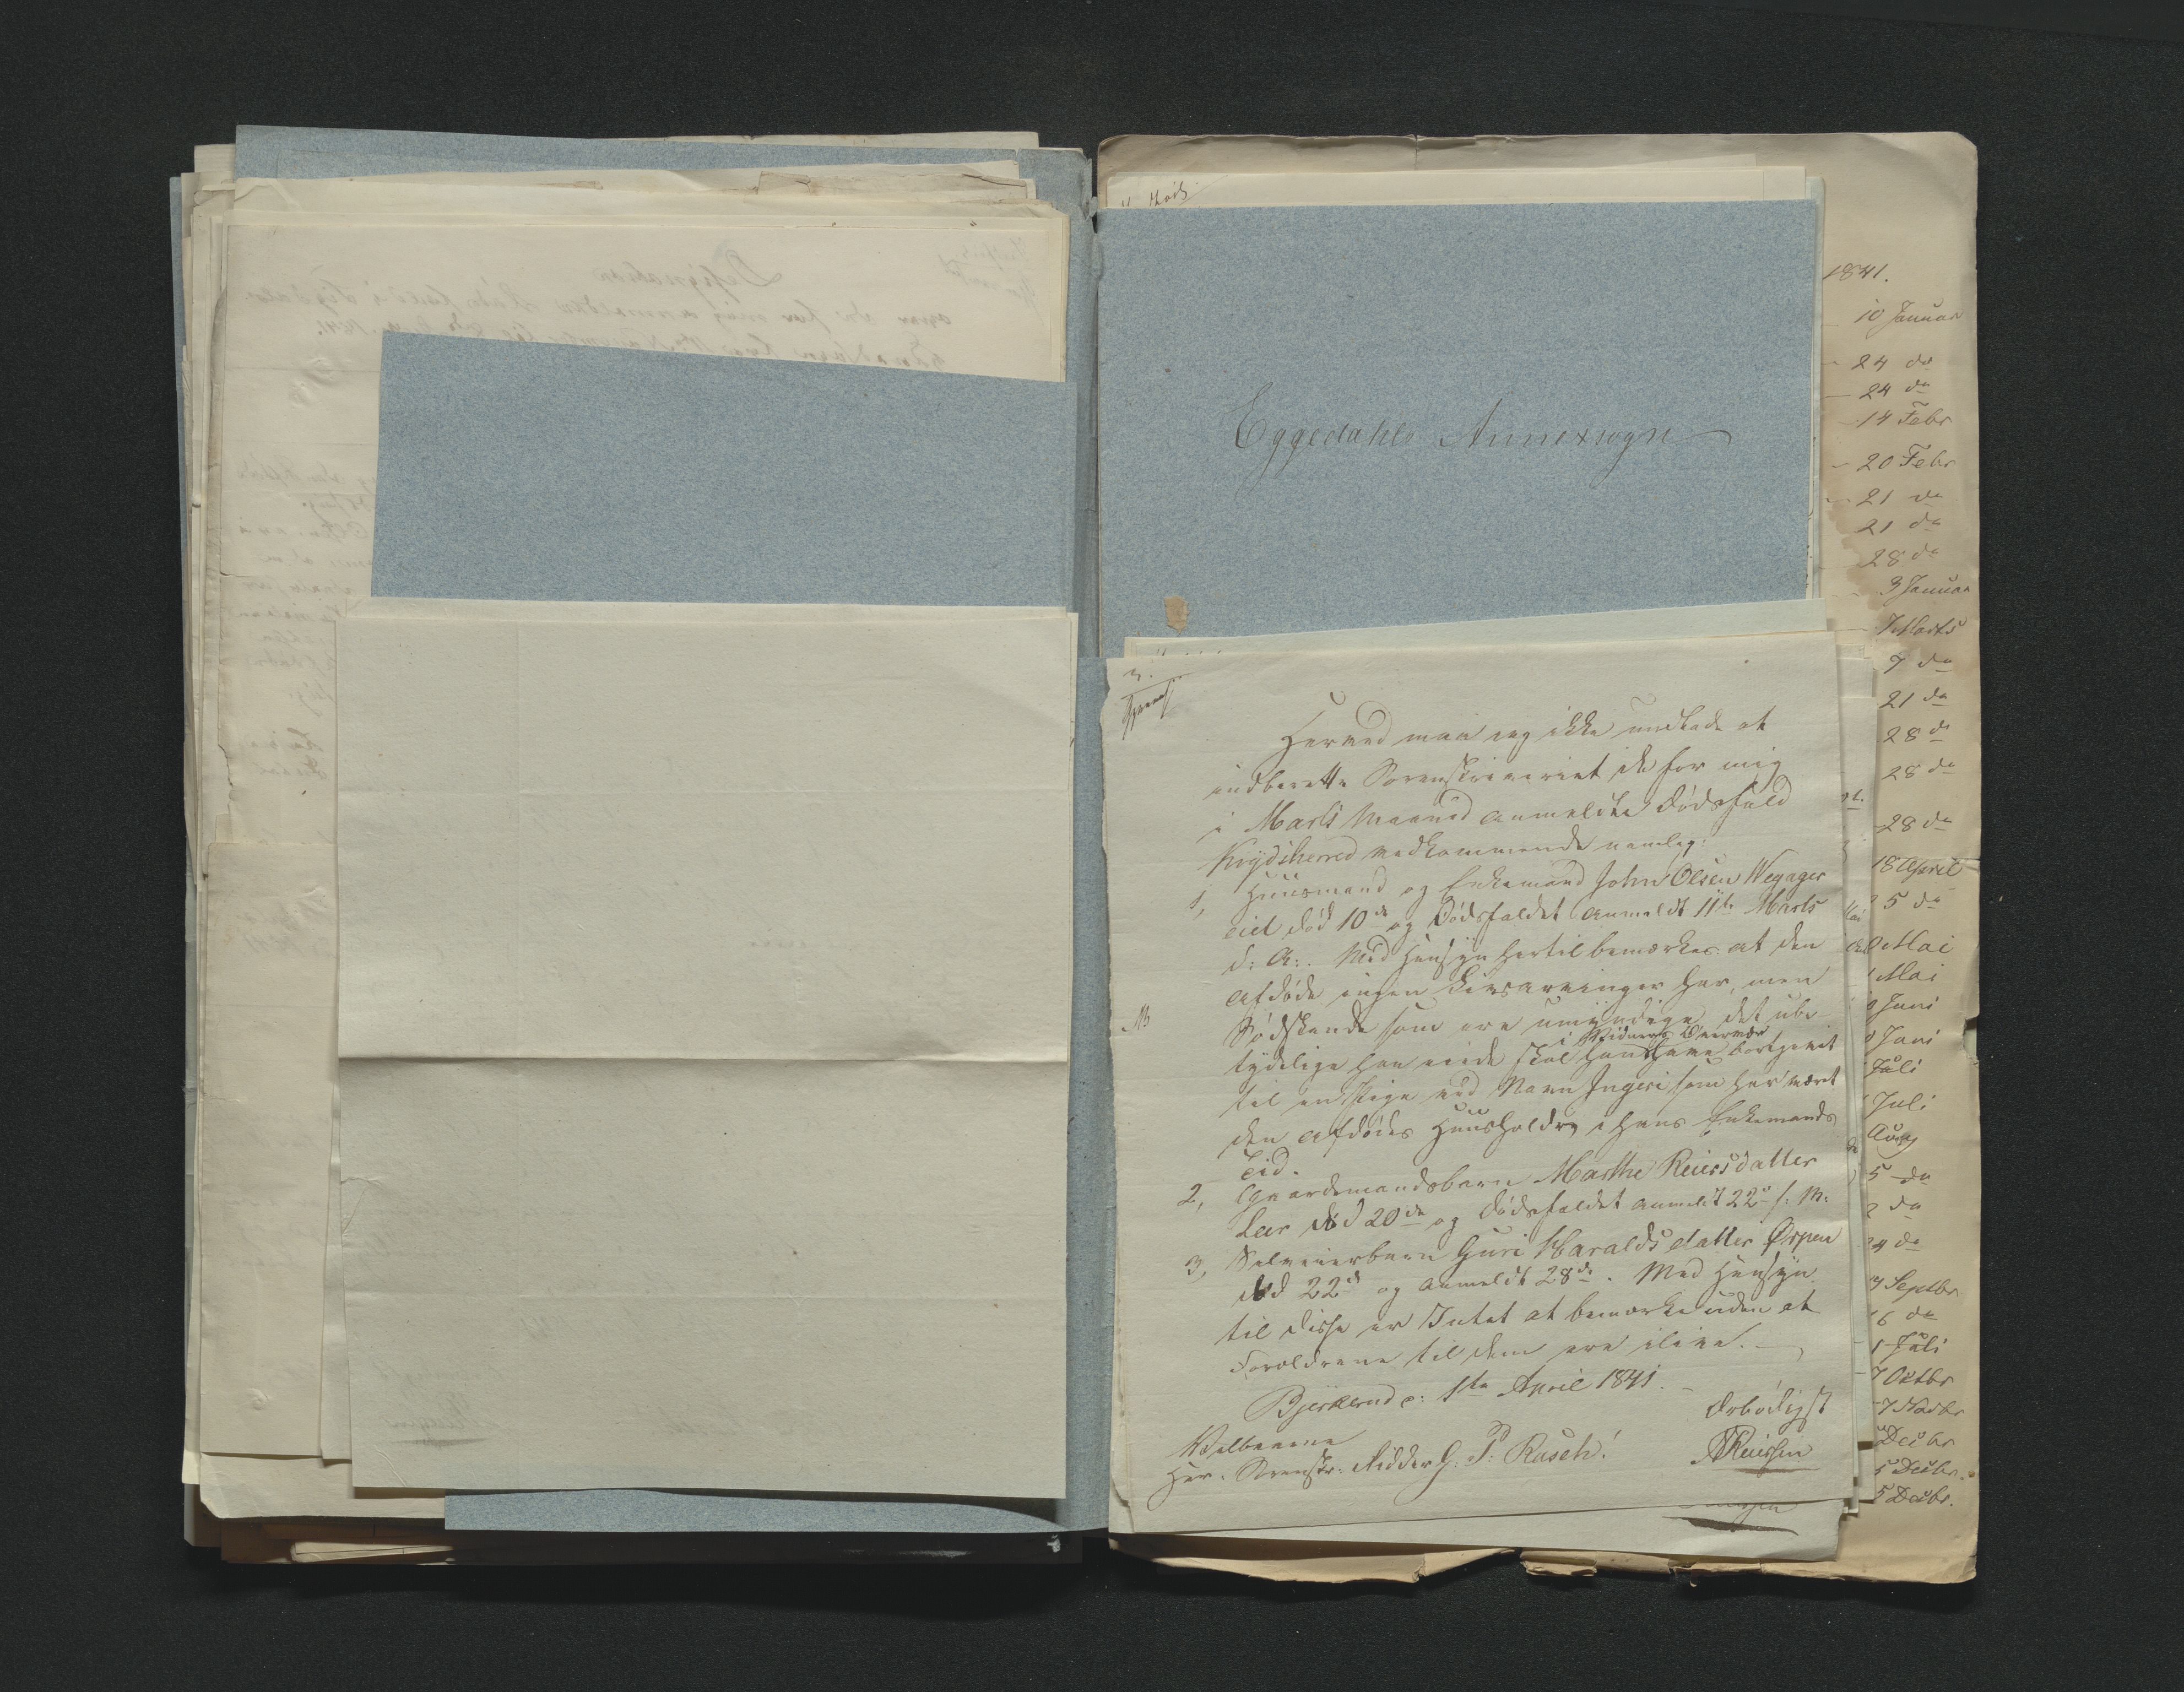 Eggedahls Annexsogn
3.
Herved maa jeg ikke undlade at
indberette Sorenskriveriet de for mig
i Marts Maaned anmeldte Dødsfald
Krydsherred vedkommende nemlig:
1, Huusmand og Enkemand John Olsen Weyager
eiet død 10de og Dødsfaldet anmeldt 11te Marts
d: A:. Med Hensyn hertil bemærkes at den
afdøde ingen Livsarvinger har, men
NB Sødskende som ere umyndige, det ube-
i Vidners Overvær
tydelige han eiede skal han have bortgivet
til en Pige ved Navn Ingeri som har været
den afdødes Huusholdr, i hans Enkemands
Tid.
2, Gaardmandsbarn Marthe Reiersdatter
Leer død 20de og Dødsfaldet anmeldt 22de s: M:
3, Selveierbarn Guri Haraldsdatter Ørpen
død 22de og anmeldt 28de. Med Hensyn
til disse er Intet at bemærke uden at
Forældrene til dem ere ilive.
Bjerkerud d: 1te April 1841.
Ærbødigst
Velbaarne
Herr Sorenskr: Ridder G: P: Rasch!
1841.
10 Januar
24 do
24 do
14 Febr
20 Febr
21 do
21 do
28 do
3 Januar
7 Marts
7 do
21 do
28 do
28 do
28 do
18 April
25 do
Mai
Mai
Juni
Juni
Juli
Juli
Aug
5 do
do
24 do
Septbr
16 do
Juli
7 Oktbr
7 Novbr
Decbr
5 Decbr.
5 Decbr.